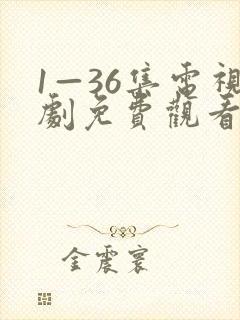 1—36集電視
劇免費觀看
金震寰